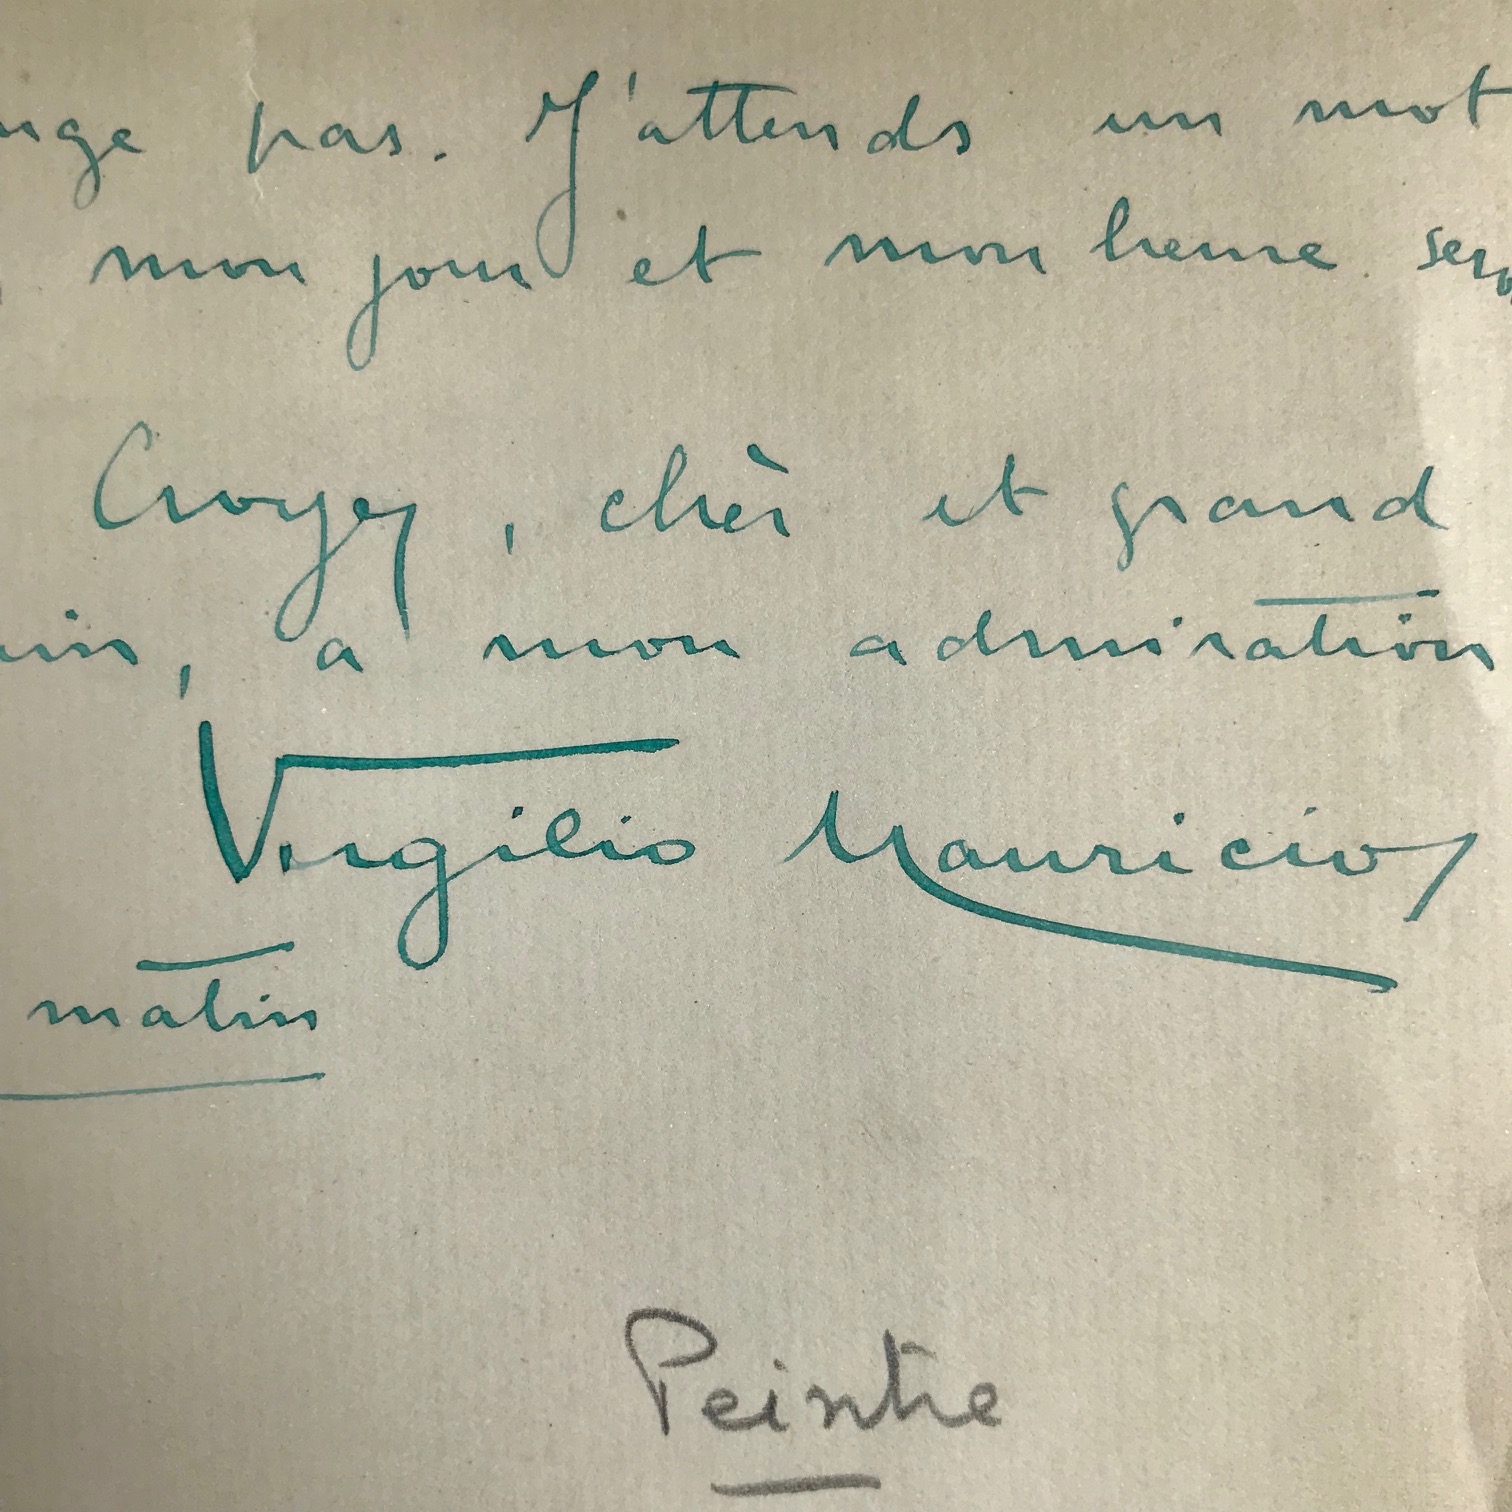 nge pas. J'attends un mot
, mon jour et mon heure ser
Croyez, chèr et grand
ain, a mon admiration
Virgilio Mauricio
matin
Peintre